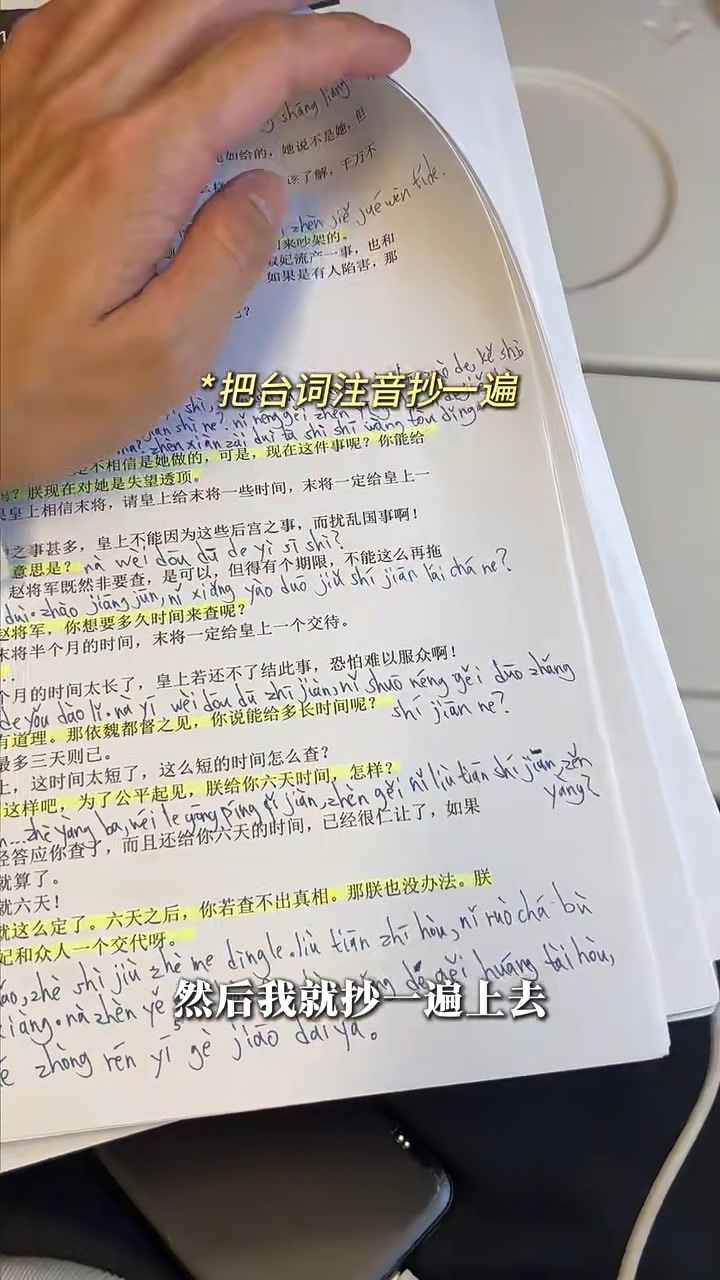 shāng liàng
如给的，她说不是她，但
该了解，千万不
zhèn jiě jué wèn tí de.
来吵架的。
妃流产一事，也和
如果是有人陷害，那
？
de, kě shì
*把台词注音抄一遍
jiàn shì ne? nǐ néng gěi zhèn
zhèn xiàn zài duì tā shì shī wàng tòu dǐng
是不相信是她做的，可是，现在这件事呢？你能给
吗？朕现在对她是失望透顶。
果皇上相信末将，请皇上给末将一些时间，末将一定给皇上一
之事甚多，皇上不能因为这些后宫之事，而扰乱国事啊！
意思是？ nà wèi dōu dū de yì sī shì?
赵将军既然非要查，是可以，但得有个期限，不能这么再拖
duì. zhào jiāng jūn, nǐ xiǎng yào duō jiǔ shí jiān lái chá ne?
赵将军，你想要多久时间来查呢？
末将半个月的时间，末将一定给皇上一个交待。
个月的时间太长了，皇上若还不了结此事，恐怕难以服众啊！
de yǒu dào lǐ. nà yī wèi dōu dū zhī jiàn, nǐ shuō néng gěi duō zhǎng
有道理。那依魏都督之见，你说能给多长时间呢？ shí jiān ne?
最多三天则已。
上，这时间太短了，这么短的时间怎么查？
这样吧，为了公平起见，朕给你六天时间，怎样？
n... zhè yàng ba, wèi le gōng píng qǐ jiàn, zhèn gěi nǐ liù tiān shí jiān, zěn yàng?
经答应你查了，而且还给你六天的时间，已经很仁让了，如果
就算了。
就六天！
就这么定了。六天之后，你若查不出真相。那朕也没办法。朕
妃和众人一个交代呀。
hǎo, zhè shì jiù zhè me dìng le. liù tiān zhī hòu, nǐ ruò chá bù
xiàng. nà zhèn yě gěi huáng tài hòu,
然后我就抄一遍上去
zhòng rén yī gè jiāo dài ya.
5